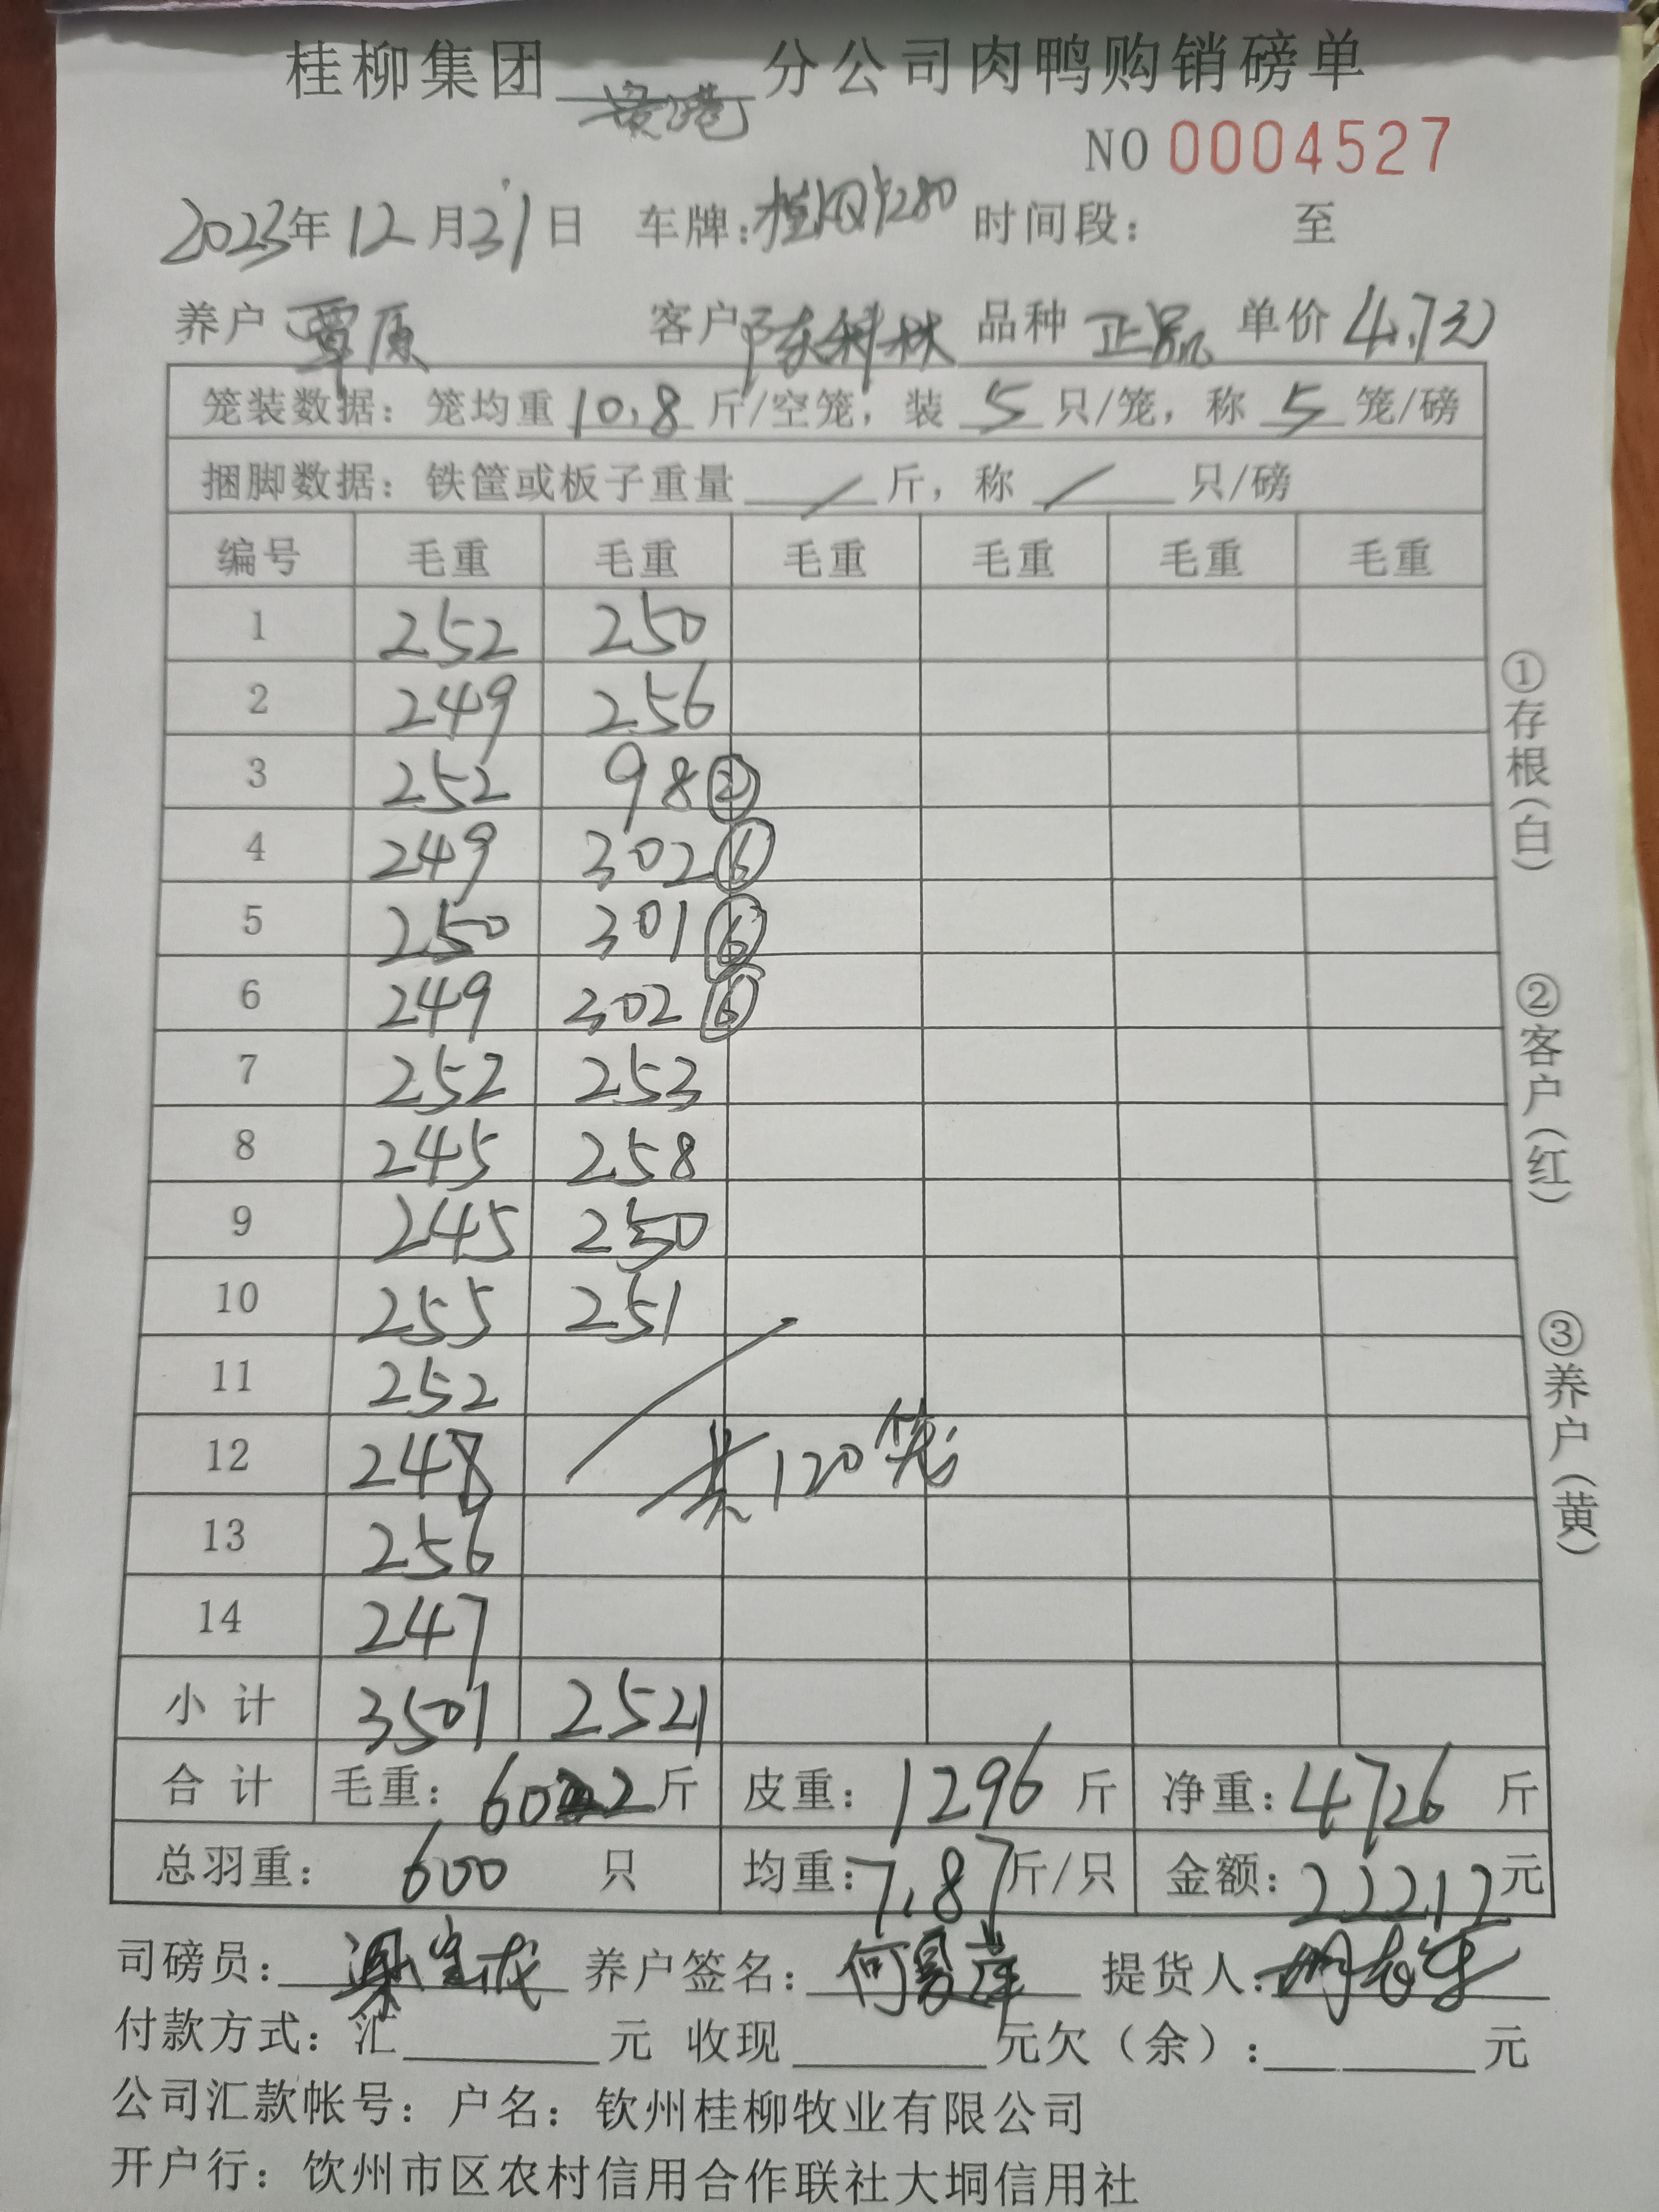 桂柳集团 贵港 分公司肉鸭购销磅单
NO 0004527
2023年12月31日 车牌: 时间段: 至
养户 覃原 客户 陈科林 品种 正品 单价 4.7元
笼装数据: 笼均重 10.8 斤/空笼, 装 5 只/笼, 称 5 笼/磅
捆脚数据: 铁筐或板子重量 / 斤, 称 / 只/磅
编号 毛重 毛重 毛重 毛重 毛重 毛重
1 252 250
2 249 256
3 252 98②
4 249 302⑥
5 250 301⑥
6 249 302⑥
7 252 253
8 245 258
9 245 250
10 255 251
11 252
12 248 共120笼
13 256
14 247
小计 3501 2521
合计 毛重: 6022斤 皮重: 1296斤 净重: 4726斤
总羽重: 600 只 均重: 7.87斤/只 金额: 22212元
司磅员: 养户签名: 提货人:
付款方式: 汇 元 收现 元欠(余): 元
公司汇款帐号: 户名: 钦州桂柳牧业有限公司
开户行: 饮州市区农村信用合作联社大垌信用社
①存根(白)
②客户(红)
③养户(黄)